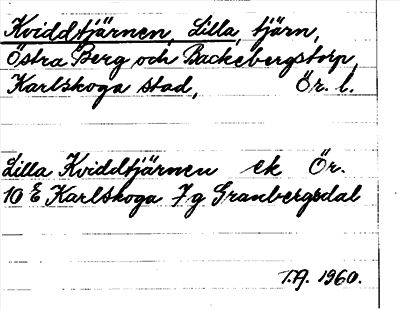 Kviddtjärnen, Lilla, tjärn,
Östra Berg och Backebergstorp,
Karlskoga stad, Ör. l.
Lilla Kviddtjärnen ek Ör.
10 E Karlskoga 7g Granbergsdal
T.A. 1960.